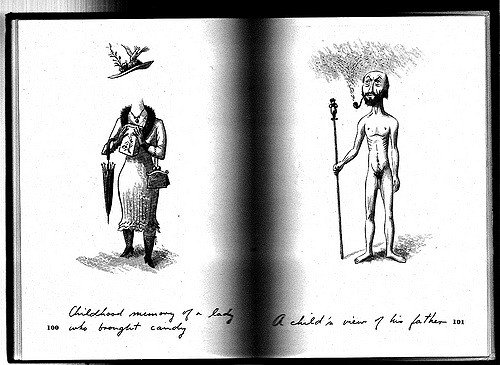 Childhood memory of a lady
100 who brought candy
A child's view of his father 101